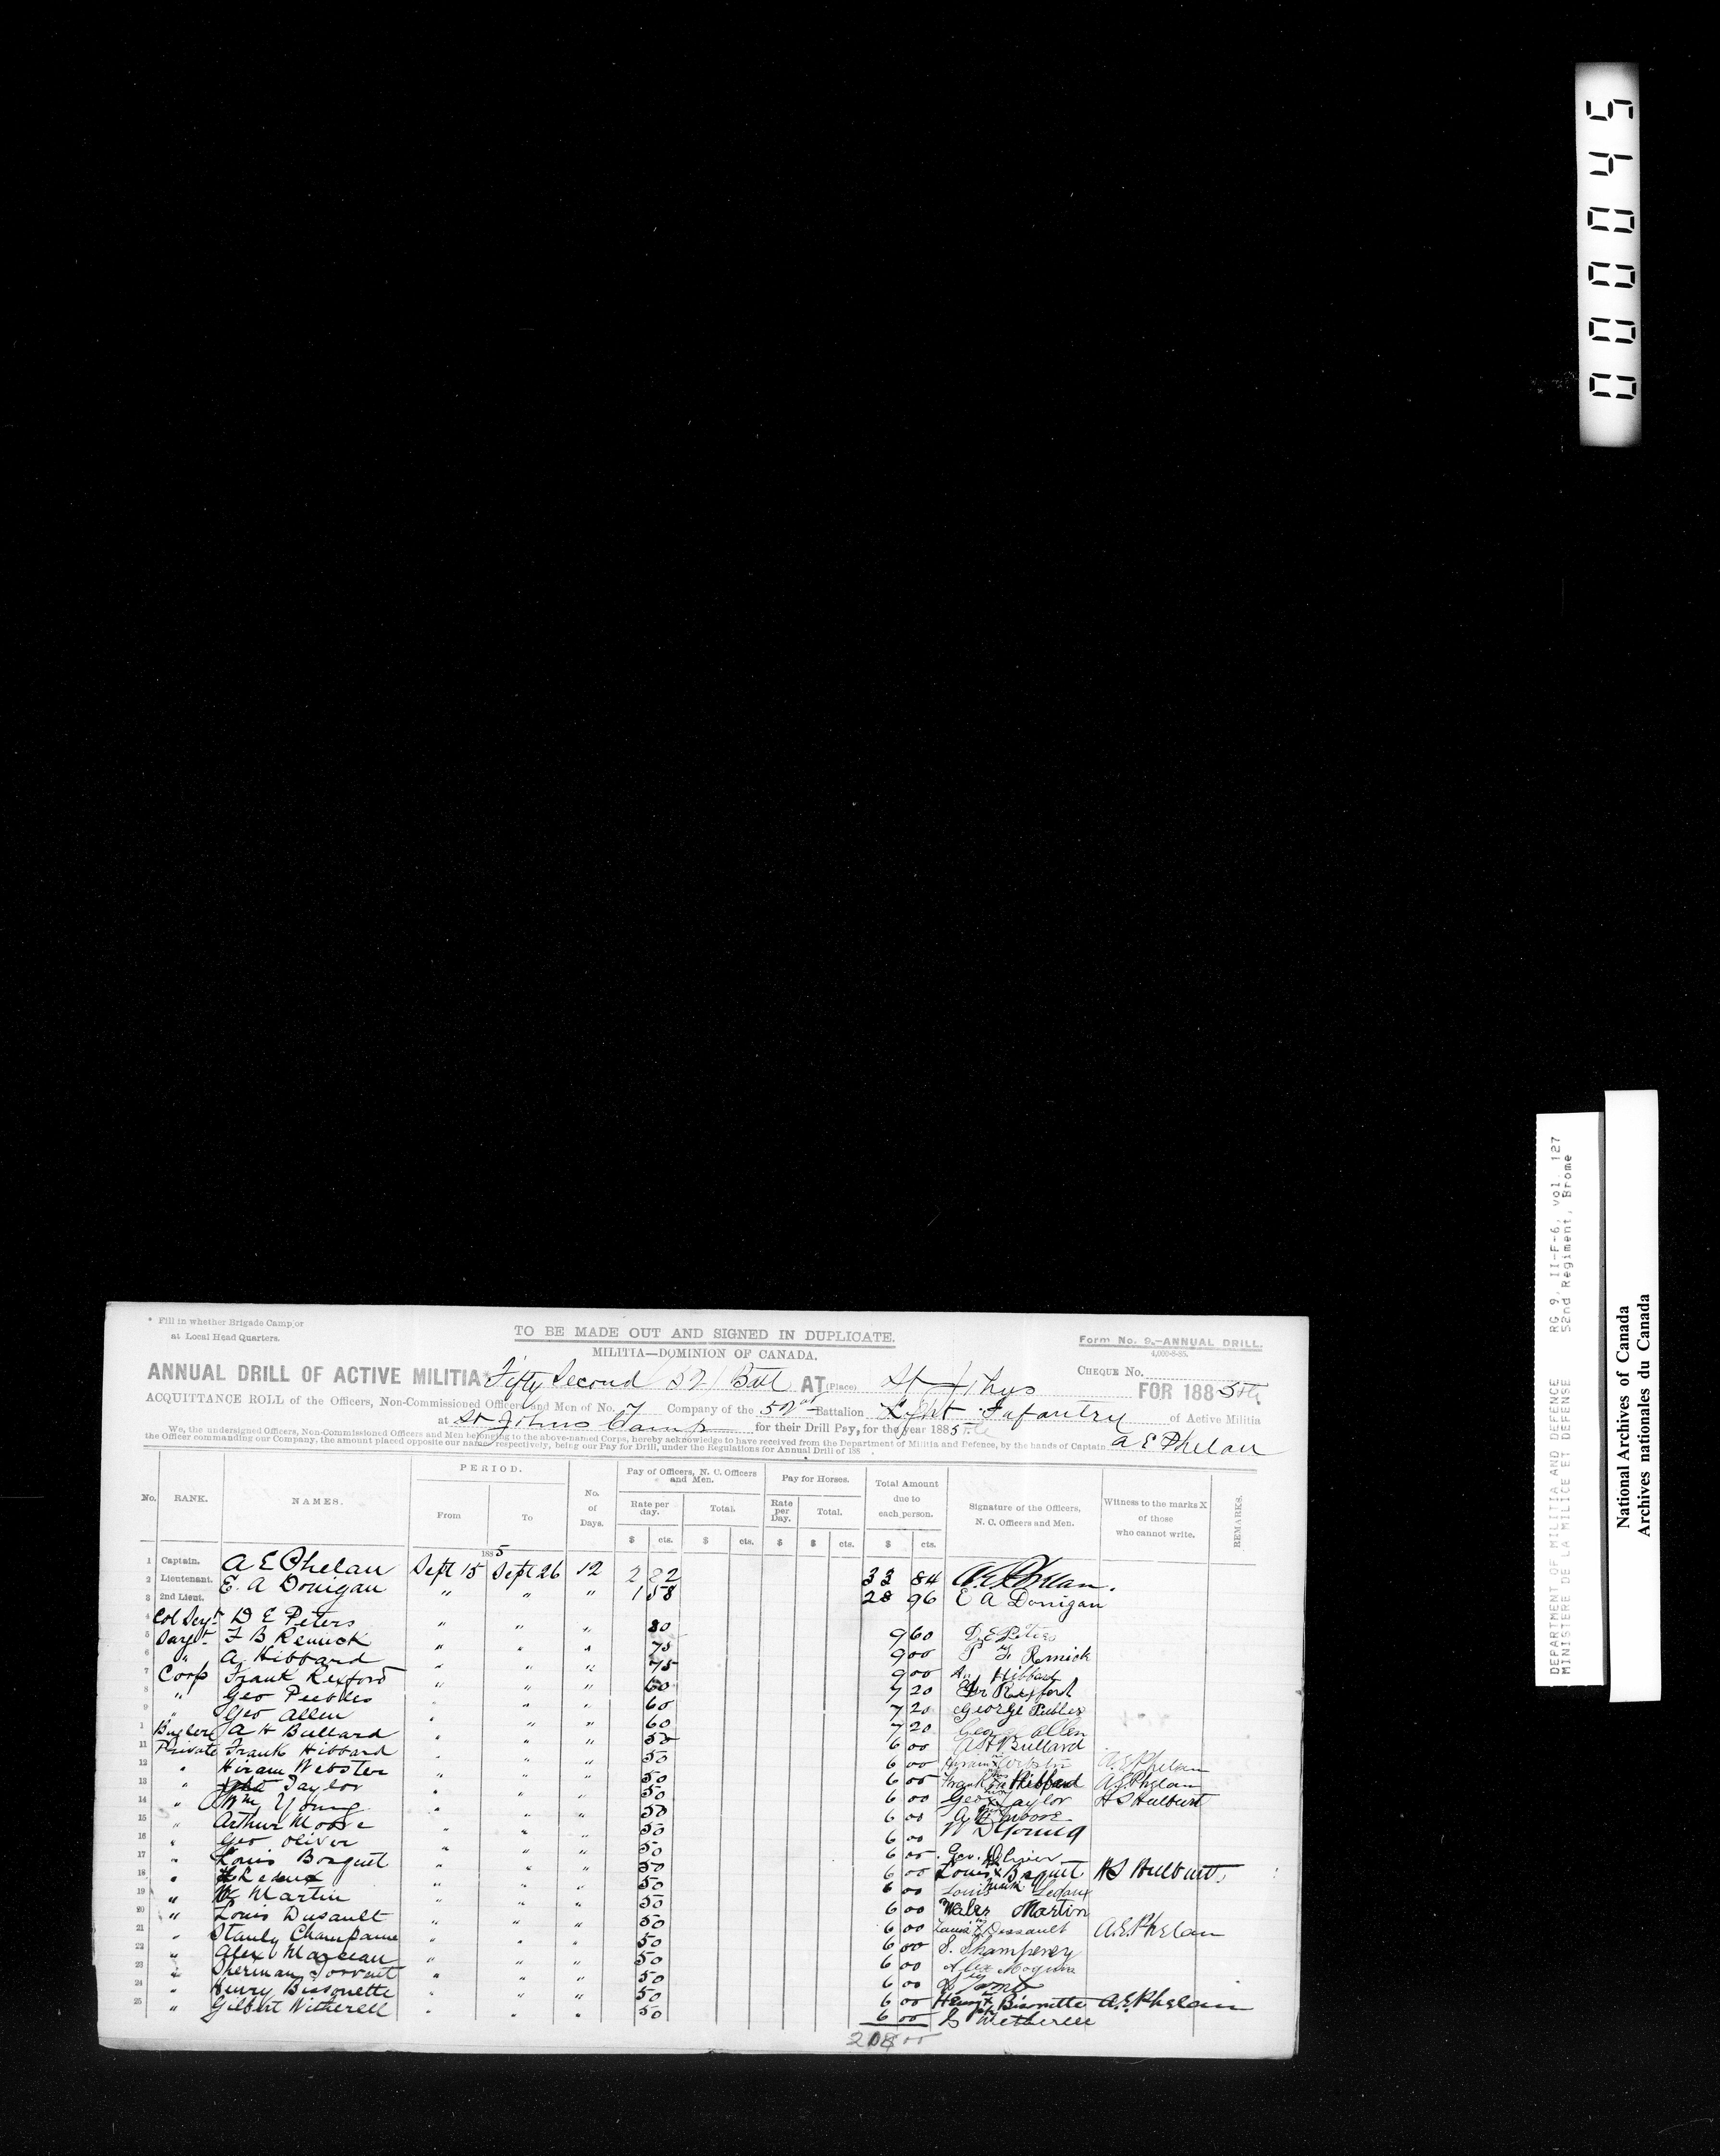 00045
* Fill in whether Brigade Camp or
at Local Head Quarters.
TO BE MADE OUT AND SIGNED IN DUPLICATE.
Form No. 9.—ANNUAL DRILL.
4,000-8-85.
MILITIA—DOMINION OF CANADA.
CHEQUE No.
ANNUAL DRILL OF ACTIVE MILITIA* Fifty Second 52 / Batt AT (Place) St Johns FOR 1885
ACQUITTANCE ROLL of the Officers, Non-Commissioned Officers and Men of No. 7 Company of the 52nd Battalion Light Infantry of Active Militia
at St Johns Camp for their Drill Pay, for the year 1885
We, the undersigned Officers, Non-Commissioned Officers and Men belonging to the above-named Corps, hereby acknowledge to have received from the Department of Militia and Defence, by the hands of Captain A E Phelan
the Officer commanding our Company, the amount placed opposite our names respectively, being our Pay for Drill, under the Regulations for Annual Drill of 188 .
No. RANK. NAMES. PERIOD. From To No. of Days. Pay of Officers, N. C. Officers and Men. Rate per day. Total. Pay for Horses. Rate per Day. Total. Total Amount due to each person. Signature of the Officers, N. C. Officers and Men. Witness to the marks X of those who cannot write. REMARKS.
$ cts. $ cts. $ $ cts. $ cts.
1885
1 Captain. A E Phelan Sept 15 Sept 26 12 2 82 33 84 A E Phelan.
2 Lieutenant. E. A Donigan " " " 1 58 28 96 E A Donigan
3 2nd Lieut.
4 Col Sergt D E Peters " " " 80 9 60 D. E Peters
5 Sargt F B Remick " " " 75 9 00 F Remick
6 " A Hibbard " " " 75 9 00 A Hibbard
7 Corp Frank Rexford " " " 60 7 20 Rexford
8 " Geo Peebles " " " 60 7 20 George Peebles
9 " Geo Allen " " " 60 7 20 Geo Allen
1 Buglere A H Bullard " " " 50 6 00 A H Bullard
11 Private Frank Hibbard " " " 50 6 00 Hiram Webster A. E. Phelan
12 " Hiram Webster " " " 50 6 00 Frank Hibbard A. E. Phelan
13 " Taylor " " " 50 6 00 Geo Taylor H S Hulburt
14 " Wm Young " " " 50 6 00 A Moore
15 " Arthur Moore " " " 50 6 00 W D Young
16 " Geo Oliver " " " 50 6 00 Geo. Oliver
17 " Louis Boquet " " " 50 6 00 Louis X Boquet H S Hulburt,
18 " L Ledux " " " 50 6 00 Louis Ledux
19 " W Martin " " " 50 6 00 Martin
20 " Louis Dusault " " " 50 6 00 Louis X Dussault A. E. Phelan
21 " Stanly Champanie " " " 50 6 00 S. Shamperey
22 " Alex " " " 50 6 00 Alex
23 " Sherman " " " 50 6 00
24 " Henry Bissonette " " " 50 6 00 Henry X Bisonette A. E. Phelan
25 " Gilbert Witherell " " " 50 6 00 G Wetherell
208 00
DEPARTMENT OF MILITIA AND DEFENCE RG 9, II-F-6, vol. 127
MINISTERE DE LA MILICE ET DEFENSE 52nd Regiment, Brome
National Archives of Canada
Archives nationales du Canada